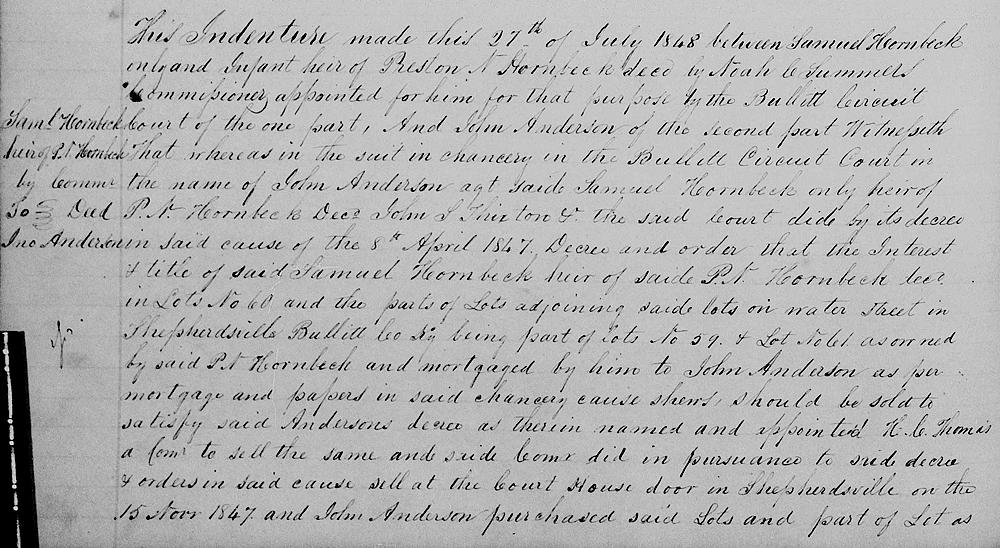 This Indenture made this 27th of July 1848 between Samuel Hornbeck
only and Infant heir of Preston N Hornbeck Decd by Noah C Summers
Commissioner appointed for him for that purpose by the Bullitt Circuit
Court of the one part, And John Anderson of the second part Witnesseth
That whereas in the suit in chancery in the Bullitt Circuit Court in
the name of John Anderson agt said Samuel Hornbeck only heir of
P. N. Hornbeck Decd John S Thixton &. the said Court did by its decree
in said cause of the 8th April 1847. Decree and order that the Interest
& title of said Samuel Hornbeck heir of said P. N. Hornbeck decd
in Lots No 60 and the parts of Lots adjoining said lots on water street in
Shepherdsville Bullitt Co Ky being part of lots No 59. & Lot No 61 as owned
by said P. N Hornbeck and mortgaged by him to John Anderson as per
mortgage and papers in said chancery cause shews, should be sold to
satisfy said Andersons decree as therein named and appointed H. C. Thomas
a Comr to sell the same and said Comr did in pursuance to said decree
& orders in said cause sell at the Court House door in Shepherdsville on the
15 Novr 1847. and John Anderson purchased said Lots and part of Lot as
Saml Hornbeck
heir of P. N Hornbeck
by Commr
To Deed
Jno Anderson